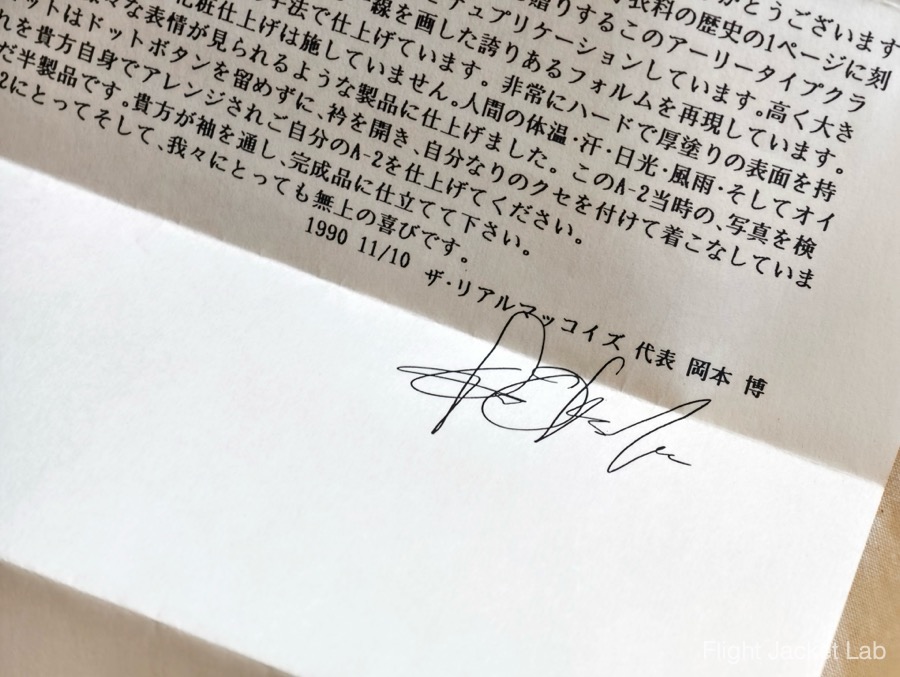 がとうございます
衣料の歴史の1ページに刻
贈りするこのアーリータイプクラ
チュプリケーションしています。高く大き
線を画した誇りあるフォルムを再現しています。
手法で仕上げています。非常にハードで厚塗りの表面を持
化粧仕上げは施していません。人間の体温・汗・日光・風雨・そしてオイ
々な表情が見られるような製品に仕上げました。このA-2当時の、写真を検
ットはドットボタンを留めずに、衿を開き、自分なりのクセを付けて着こなしていま
れを貴方自身でアレンジされご自分のA-2を仕上げてください。
だ半製品です。貴方が袖を通し、完成品に仕立てて下さい。
2にとってそして、我々にとっても無上の喜びです。
1990 11/10 ザ・リアルマッコイズ 代表 岡本 博
Flight Jacket Lab